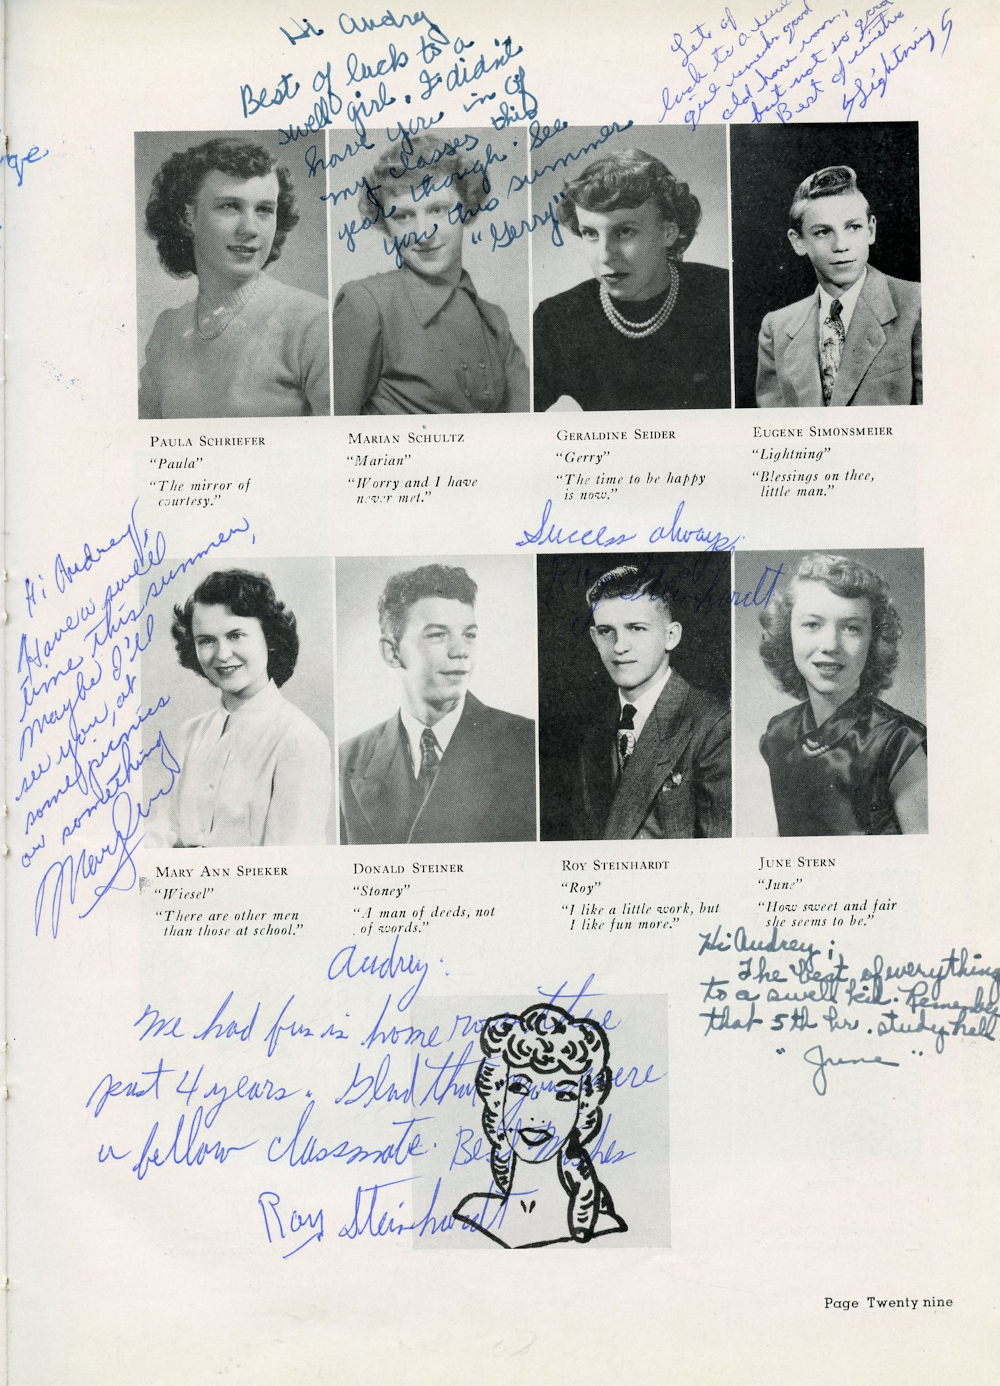 Hi Audrey
Best of luck to a
swell girl. I didn't
have you in of
my classes this
year though. See
you this summer
"Gerry"
Lots of
luck to a
girl
old home room,
but not so good
Best of
Lightning
ge
PAULA SCHRIEFER
"Paula"
"The mirror of
courtesy."
MARIAN SCHULTZ
"Marian"
"Worry and I have
never met."
GERALDINE SEIDER
"Gerry"
"The time to be happy
is now."
EUGENE SIMONSMEIER
"Lightning"
"Blessings on thee,
little man."
Success always,
Roy Steinhardt
Hi Audrey,
Have a swell
time this summer,
maybe I'll
see you, at
some picnics
or something
Mary Ann
MARY ANN SPIEKER
"Wiesel"
"There are other men
than those at school."
DONALD STEINER
"Stoney"
"A man of deeds, not
of words."
ROY STEINHARDT
"Roy"
"I like a little work, but
I like fun more."
JUNE STERN
"June"
"How sweet and fair
she seems to be."
Hi Audrey;
The best of everything
to a swell kid. Remember
that 5th hr. study hall
"June"
Audrey:
We had fun in home room the
past 4 years. Glad that you were
a fellow classmate. Best Wishes
Roy Steinhardt
Page Twenty nine